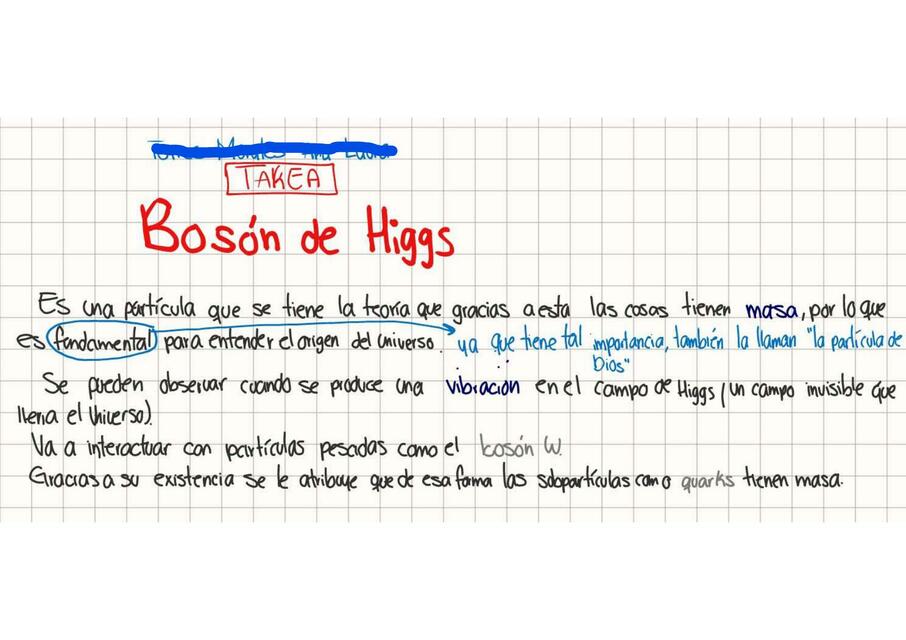 TAREA
Bosón de Higgs
Es una partícula que se tiene la teoría que gracias a esta las cosas tienen masa, por lo que
es fundamental para entender el origen del universo. ya que tiene tal importancia, también la llaman "la partícula de
Dios"
Se pueden observar cuando se produce una vibración en el campo de Higgs (un campo invisible que
llena el Universo).
Va a interactuar con partículas pesadas como el bosón W.
Gracias a su existencia se le atribuye que de esa forma las subpartículas como quarks tienen masa.